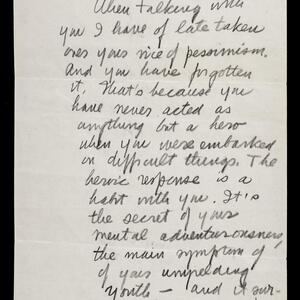 When talking with
you I have of late taken
over your vice of pessimism.
And you have forgotten
it. That's because you
have never acted as
anything but a hero
when you were embarked
on difficult things. The
heroic response is a
habit with you. It's
the secret of your
mental adventurousness,
the main symptom of
of your unyielding
youth — and it sur-